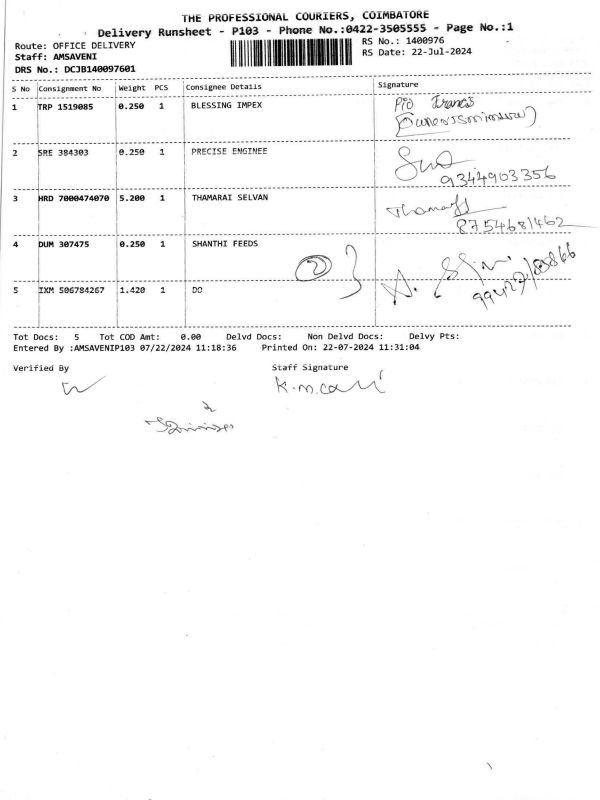 THE PROFESSIONAL COURIERS, COIMBATORE
Delivery Runsheet - P103 - Phone No.:0422-3505555 - Page No.:1
Route: OFFICE DELIVERY RS No.: 1400976
Staff: AMSAVENI RS Date: 22-Jul-2024
DRS No.: DCJB140097601
S No Consignment No Weight PCS Consignee Details Signature
1 TRP 1519085 0.250 1 BLESSING IMPEX P/O Francis
2 SRE 384303 0.250 1 PRECISE ENGINEE
9344903356
3 HRD 7000474070 5.200 1 THAMARAI SELVAN
8754681462
4 DUM 307475 0.250 1 SHANTHI FEEDS
2
5 IXM 506784267 1.420 1 DO
Tot Docs: 5 Tot COD Amt: 0.00 Delvd Docs: Non Delvd Docs: Delvy Pts:
Entered By :AMSAVENIP103 07/22/2024 11:18:36 Printed On: 22-07-2024 11:31:04
Verified By Staff Signature